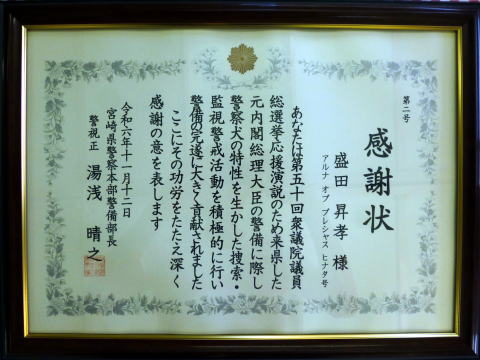 第二号
感謝状
盛田 昇孝 様
アルナ オブ プレシャス ヒナタ号
あなたは第五十回衆議院議員
総選挙応援演説のため来県した
元内閣総理大臣の警備に際し
警察犬の特性を生かした捜索・
監視警戒活動を積極的に行い
警備の完遂に大きく貢献されました
ここにその功労をたたえ深く
感謝の意を表します
令和六年十一月十二日
宮崎県警察本部警備部長
警視正 湯浅 晴之